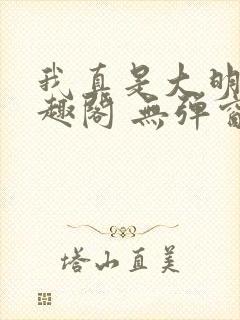 我真是大明
趣阁 無弹窗
塔山直美